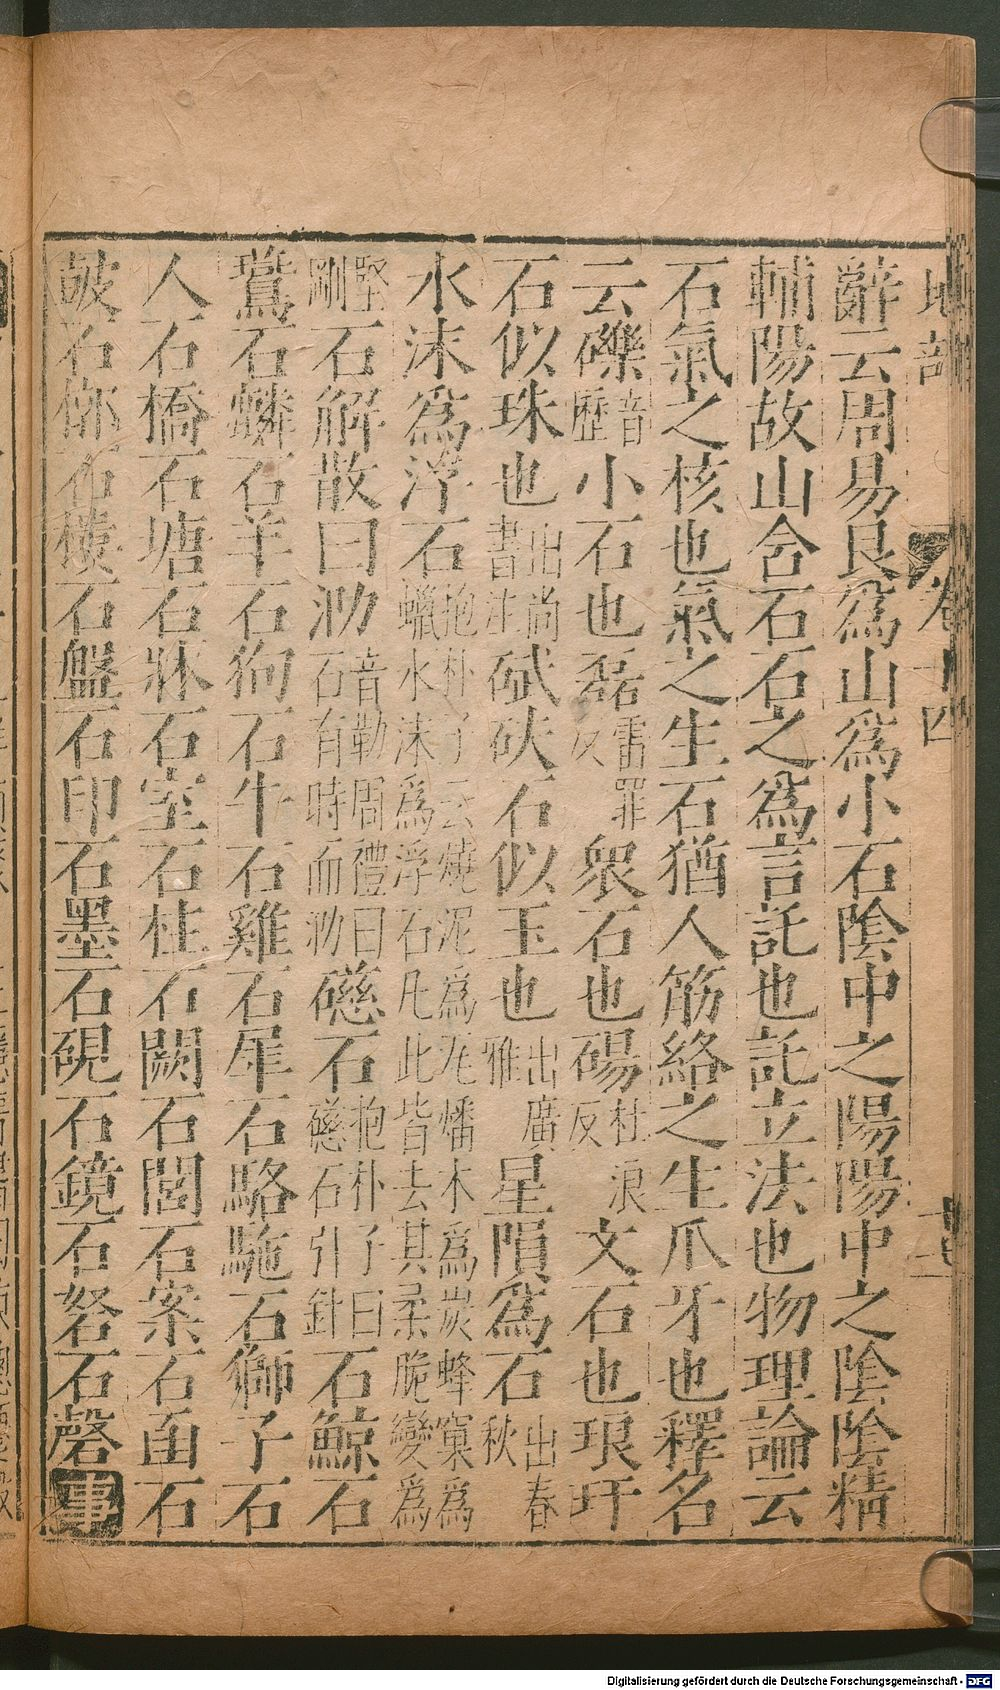 地部　卷十四
辭云周易艮爲山爲小石陰中之陽陽中之陰陰精
輔陽故山含石石之爲言託也託立法也物理論云
石氣之核也氣之生石猶人筋絡之生爪牙也釋名
云礫音歷小石也磊雷罪反衆石也碭杜浪反文石也琅玕
石似珠也出尚書注碔砆石似玉也出廣雅星隕爲石出春秋
水沫爲浮石抱朴子云燒泥爲瓦燔木爲炭蜂窠爲蠟水沫爲浮石凡此皆去其柔脆變爲
堅剛石解散曰泐音勒周禮曰石有時而泐礠石抱朴子曰礠石引針石鯨石
鷰石鱗石羊石狗石牛石雞石犀石駱駞石獅子石
人石橋石塘石牀石室石柱石闕石閣石案石函石
鼓石石石盤石印石墨石硯石鏡石砮石磬事
Digitalisierung gefördert durch die Deutsche Forschungsgemeinschaft - DFG